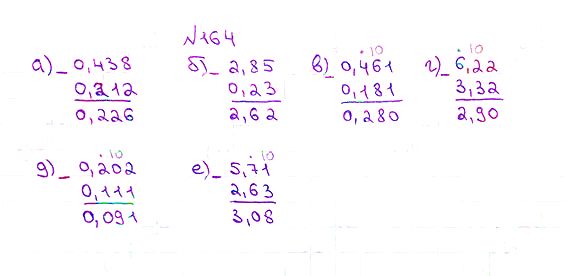 №164
а) _ 0,438 б) _ 2,85 в) _ 0,461 г) _ 6,22
0,212 0,23 0,181 3,32
0,226 2,62 0,280 2,90
д) _ 0,202 е) _ 5,71
0,111 2,63
0,091 3,08